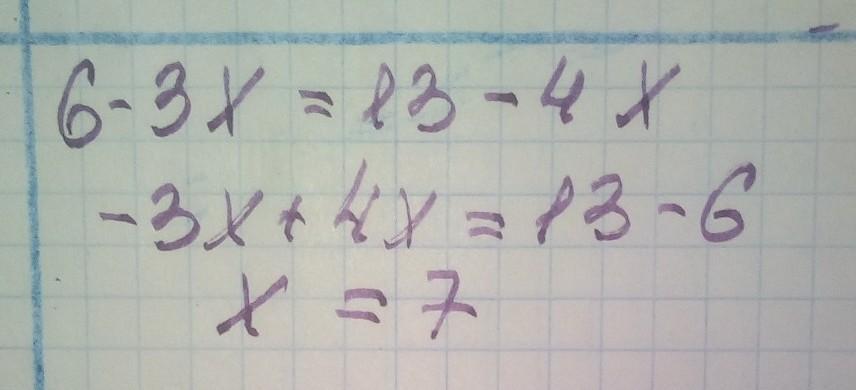 6-3x = 13 - 4x
-3x + 4x = 13 - 6
x = 7